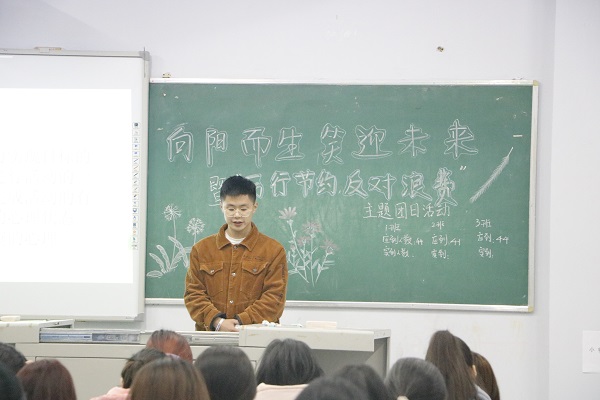 向阳而生 笑迎未来
暨"厉行节约 反对浪费"
主题团日活动
1班 2班 3班
应到人数:44 应到:44 应到:44
实到人数: 实到: 实到: